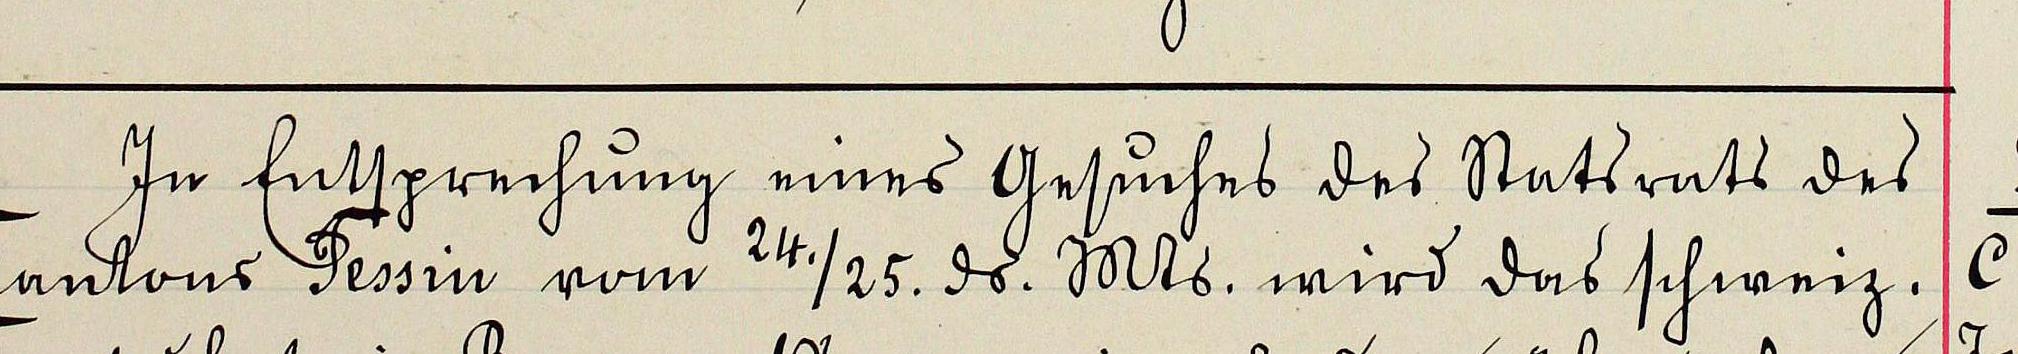 In Entsprechung eines Gesuches des Statsrats des
antons Tessin vom 24./25. ds. Mts. wird das schweiz.